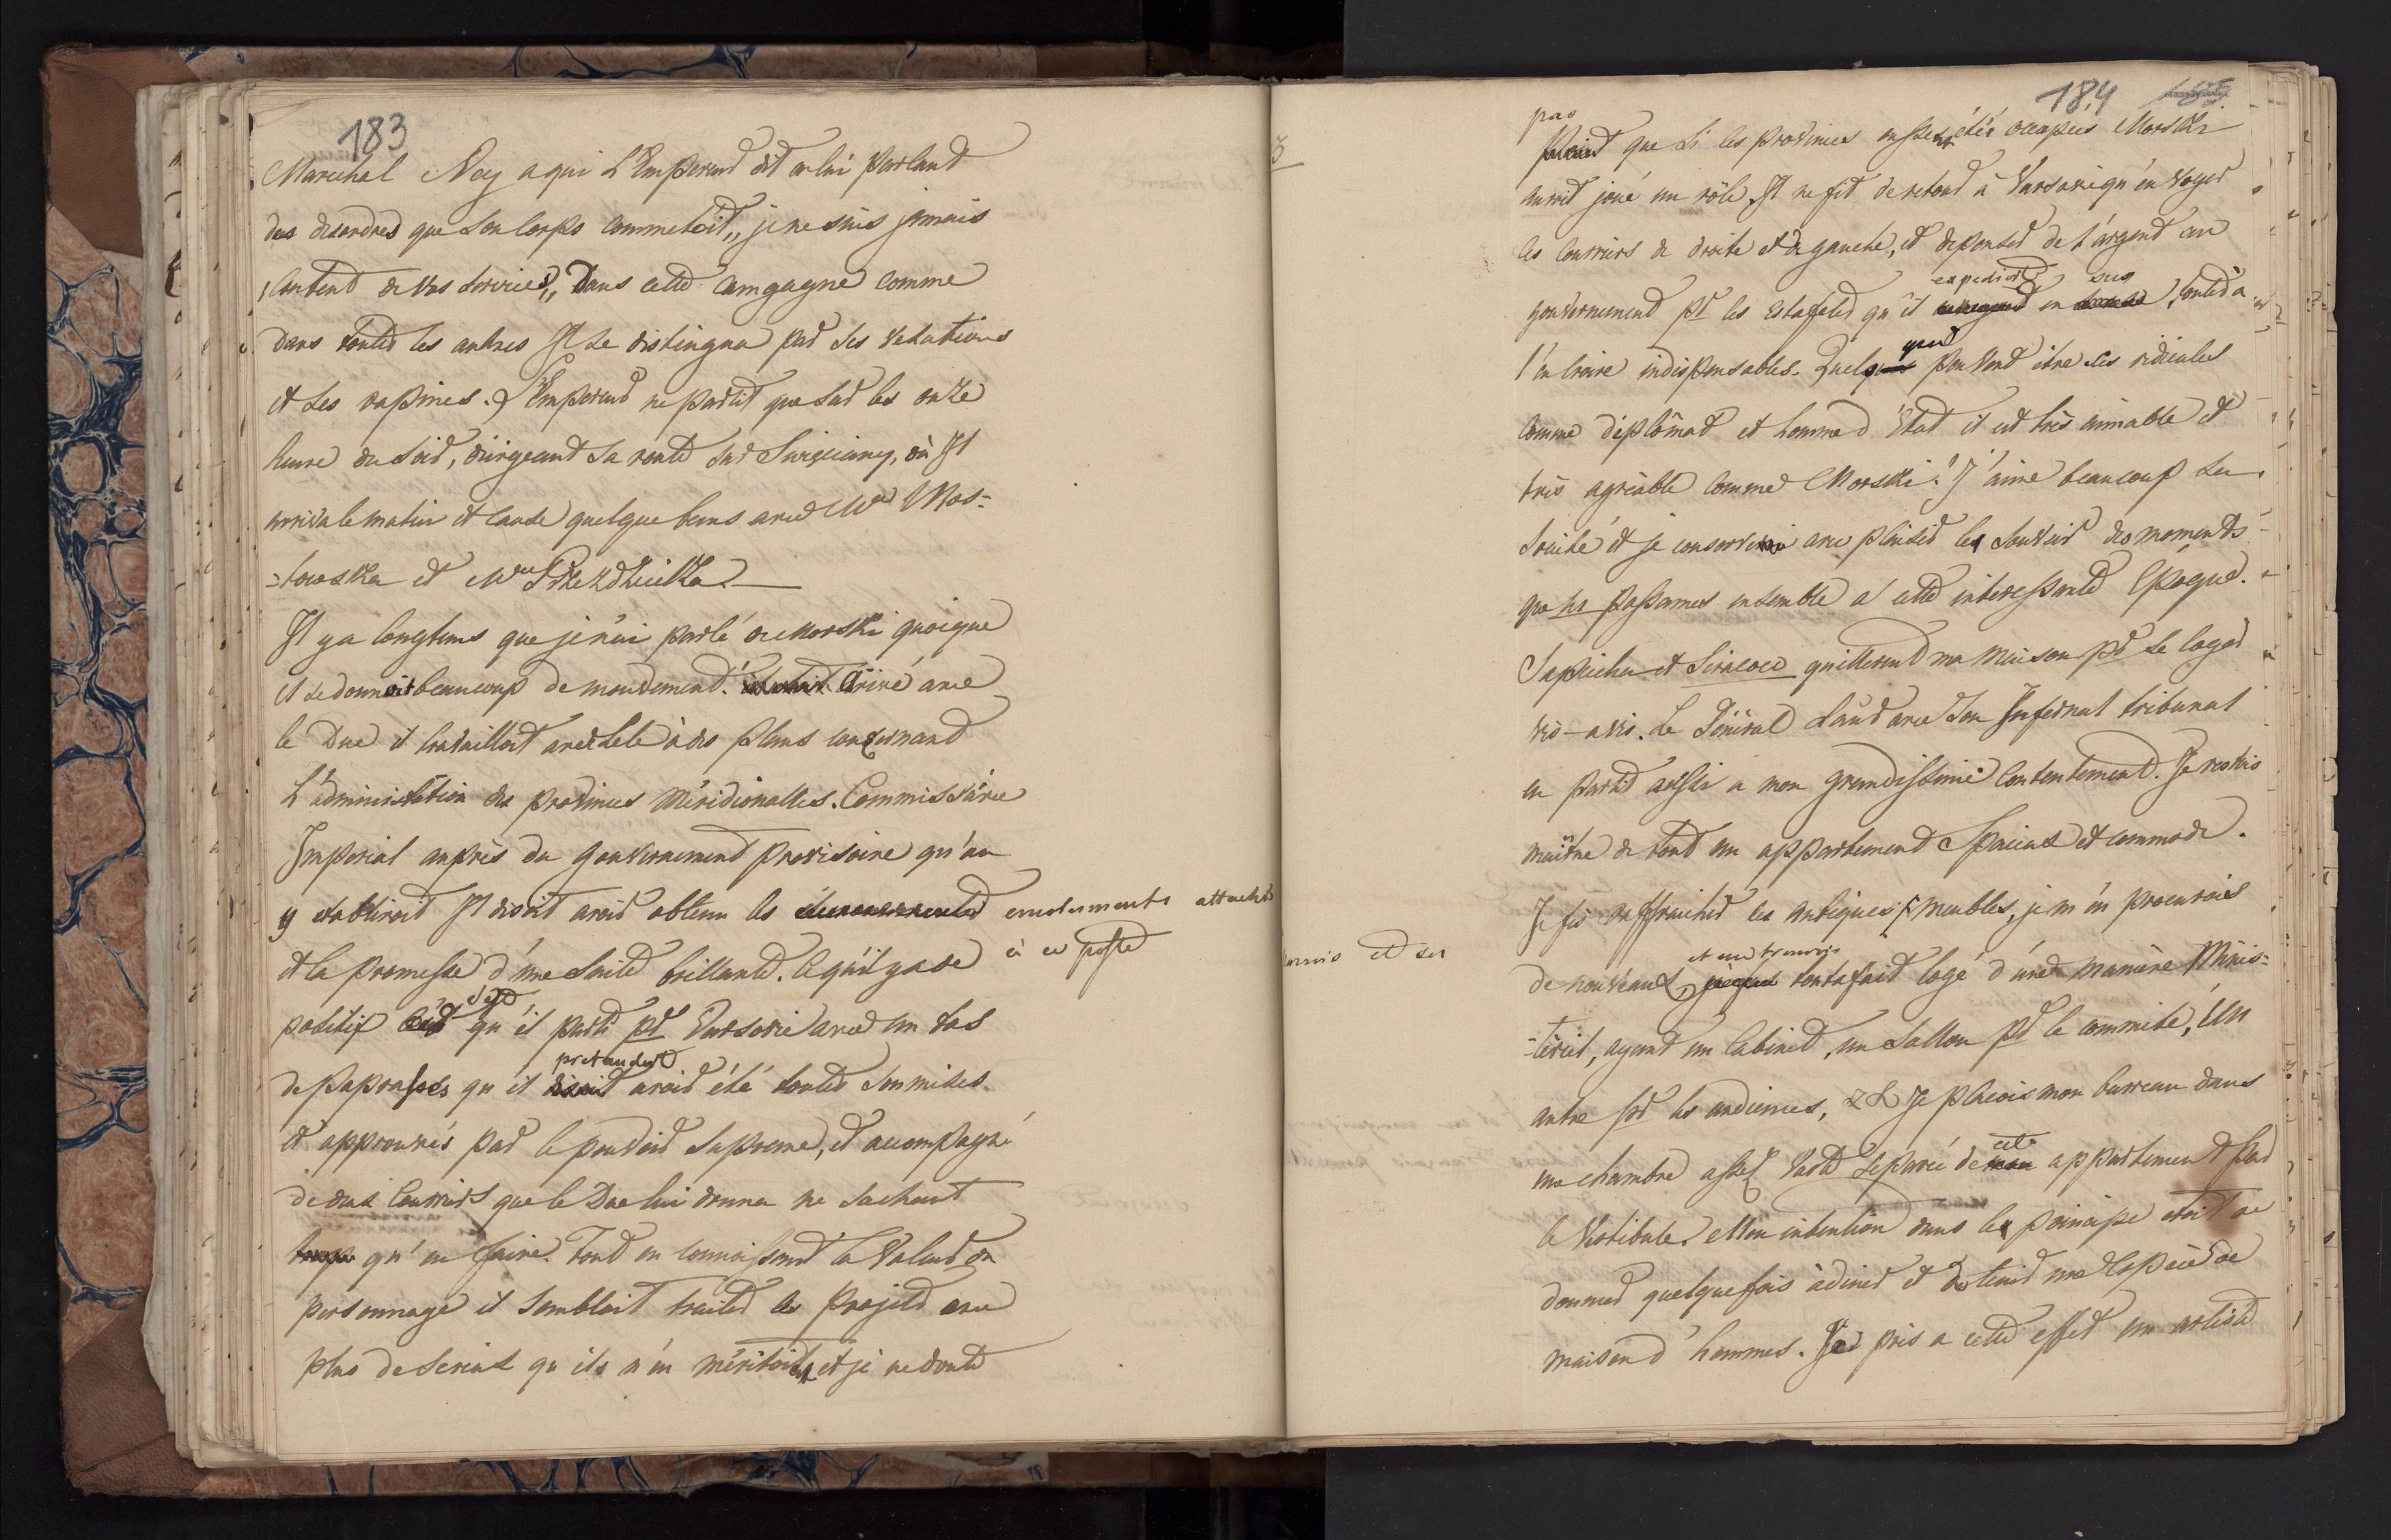 183
Marechal Ney a qui L'Empereur dit en lui parlant
des desordres que son Corps commetoit,, je ne suis jamais
content de vos services,, Dans cette Campagne comme
dans toutes les autres Il se distingua par ses vexations
et ses rapines. L'Empereur ne partit que sur les onze
heure du soir, dirigeant sa route sur Swięciany, où Il
arriva le matin et causa quelque tems avec Me Mos=
=towska et Me Przezdziecka.—
Il y a longtems que je n'ai parlé de Morski quoique
il se donnoit beaucoup de mouvement. arrivé avec
le Duc il travailloit avec zele à des plans concernant
L'administration des provinces Méridionalles. Commissaire
Imperial auprès du gouvernement provisoire qu'on
y etabliroit Il disoit avoir obtenu les emoluments attachés
à ce poste
et la promesse d'une suite brillante. Ce qu'il y a de
positif c'est qu'il partit pr Varsovie avec un tas
de paprasses qu'il pretendoit avoir été toutes soumises
et approuvés par le pouvoir supreme, et accompagné
de deux Courriers que le Duc lui donna ne sachant
qu'en faire. Tout en connoissant la valeur du
personnage il sembloit traiter les projets avec
plus de serieux qu'ils n'en méritoient et je ne doute
184
pas
que si les provinces eussent étés occupées Morski
auroit joué un rôle. Il ne fit de retour à Varsovie qu'envoyer
les Courriers de droite et de gauche, et depenser de l'argent au
expedioit sus
gouvernement pr les Estafetes qu'il en toutes à
l'en croire indispensables. Quelque peuvent être ses ridicules
comme diplomat et homme d'Etat il est très aimable et
très agréable comme Morski. J'aime beaucoup sa
société et je conserve avec plaisir le souvenir des moments
que ns passames ensemble a cette interessante Epoque.
Sapieha et quitterent ma maison pr se loger
vis-avis. Le Général avec son Infernal tribunal
en partit aussi a mon grandissime Contentement. Je restois
maitre de tout un appartement spacieux et commode.
Je fis raffraichir les antiques meubles, je m'en procurois
et me trouvois
de nouveaux, toutafait logé d'une manière Minis=
=terielle, ayant un Cabinet, un sallon pr le commité, Un
autre pr les audiences, Je plaçois mon bureau dans
une chambre assez vaste separée de cet appartement par
le Vestibule. Mon intention dans le principe etoit de
donner quelquefois à diner et de tenir une Espèce de
maison d'hommes. J'ai pris a cette effet un artiste